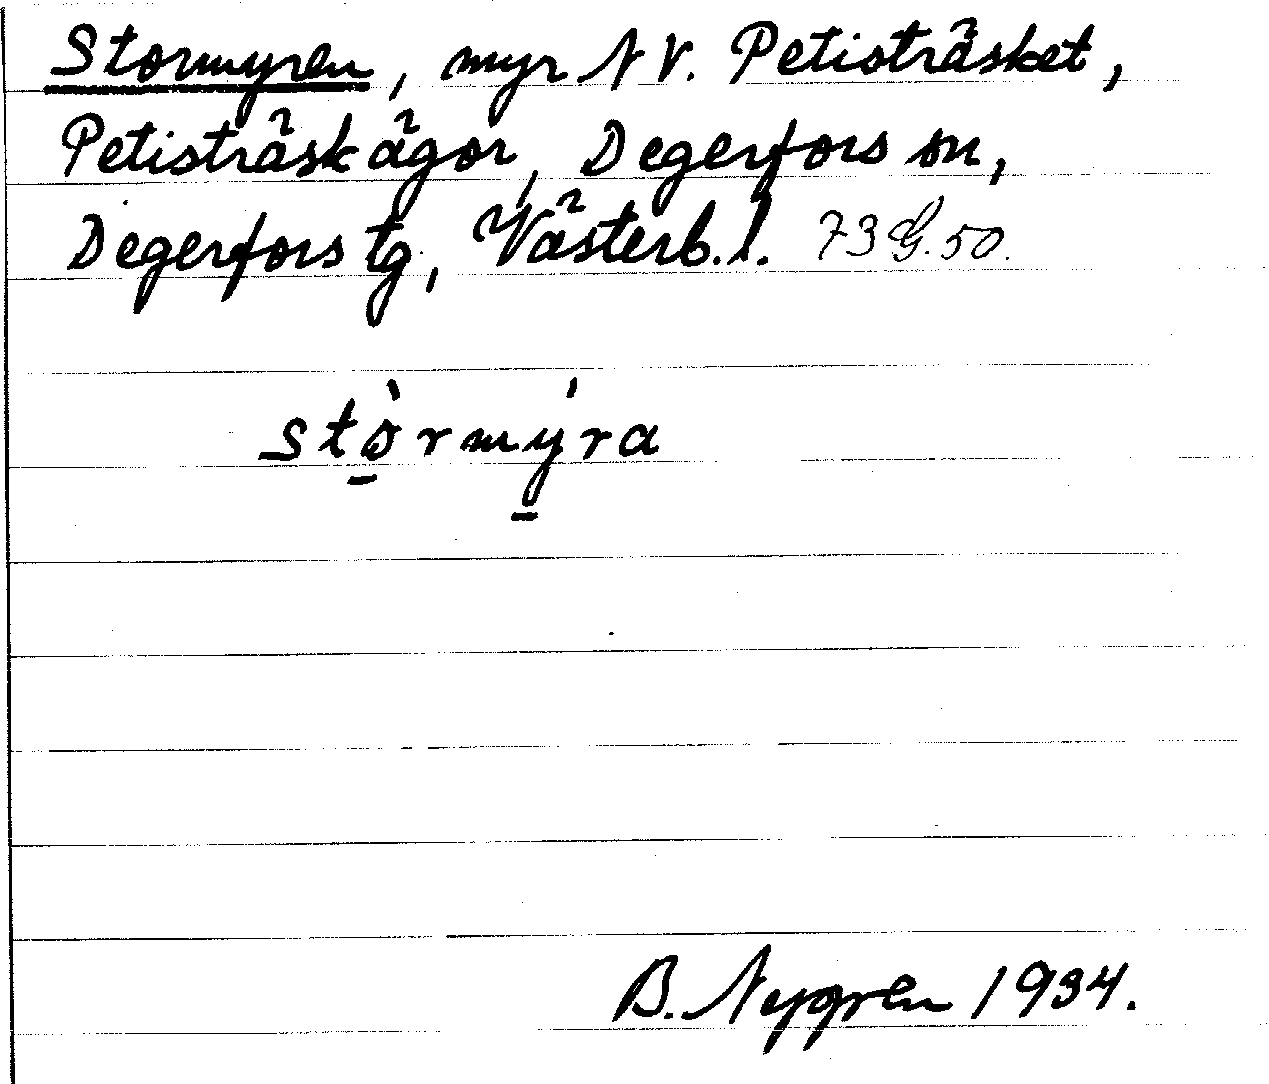 Stormyren, myr NV. Petisträsket,
Petisträskägor, Degerfors sn,
Degerfors tg, Västerb. l. 73 G. 50.
stòrmýra
B. Nygren 1934.